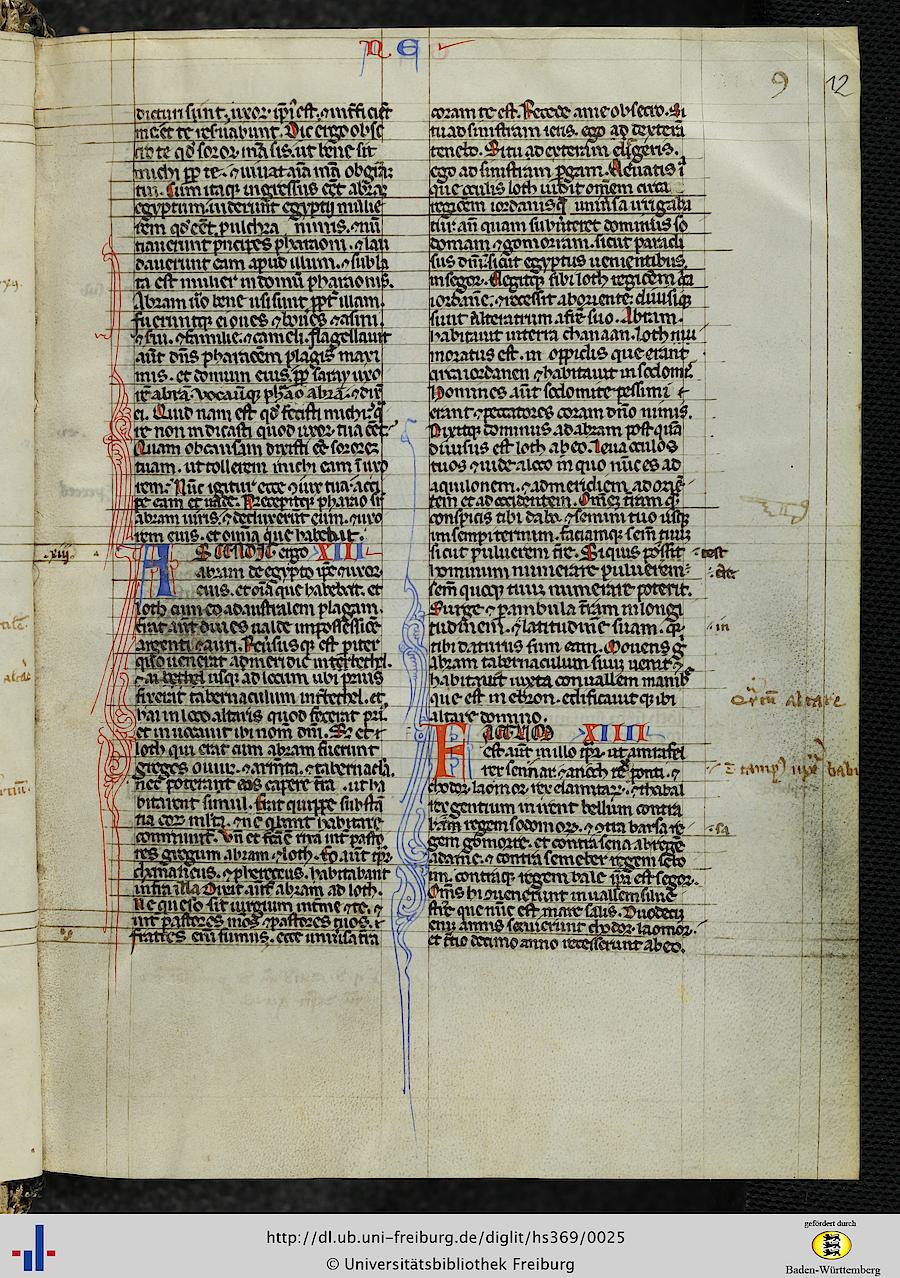 N E
9 12
dicturi sunt. uxor ipi᷒ est. ⁊ int̾ficiēt
me. et te reseruabunt. Dic ergo obse
cro te qd̾ soror mea sis. ut bene sit
michi pp̄ te. ⁊ uiuat aīa mā ob gr̄az
tui. Cum itaq; ingressus eēt abrā
egyptum. uiderunt egyptij mulie
rem qd̾ eēt pulchra nimis. ⁊ nū
tiauerunt pncipes pharaoni. ⁊ lau
dauerunt eam apud illum. ⁊ subla
ta est mulier in domū pharaonis.
Abram ūo bene usi sunt ppt̾ illam.
fueruntq; ei oues ⁊ boues ⁊ asini.
⁊ serui. ⁊ famule. ⁊ cameli. flagellauit
aūt dn̄s pharaonem plagis maxi
mis. et domum eius. pp̄ saray uxo
rē abrā. Vocauitq; phāo abrā. ⁊ dix̄
ei. Quid nam est qd̾ fecisti michi. q̄
re non indicasti quod uxor tua eēt.
Quam ob causam dixisti eē sororez
tuam. ut tollerem michi eam ī uxo
rem. Nūc igitur ecce ⁊iunx tua. acci
pe eam et uade. Precepitq; pharao sup̄
abram uiris. ⁊ deduxerūt eum. ⁊ uxo
rem eius. et omīa que habebat.
AScendit ergo XIII
abram de egypto ipe ⁊ uxor
eius. et oīa que habebat. et
loth cum eo ad australem plagam.
Erat aūt diues ualde in possessiōe
argenti ⁊ auri. Reuersusq; est p iter
quo uenerat a meridie in bethel.
usq; ad locum ubi prius
fixerat tabernaculum int̾ bethel. et
hai in loco altaris quod fecerat pri᷒.
et inuocauit ibi nom̄ dn̄i. Sȝ et
loth qui erat cum abram fuerunt
greges ouiū. ⁊ armēta. ⁊ tabernac̄la.
nec poterat eos capere t̾ra. ut ha
bitarent simul. Erat quippe substā
tia eorꝝ mlta. ⁊ ne q̄bant habitare
commun̄r. Vn̄ et fc̄a ē rixa int̾ pasto
res gregum abram. ⁊ loth. Eo aūt tp̄r
chananeus. ⁊ pherezeus. habitabant
in t̾ra illa. Dixit aūt abram ad loth.
Ne queso sit iurgium int̾ me ⁊ te. ⁊
int̾ pastores meos. ⁊ pastores tuos.
fratres eni sumus. ecce uniūsa t̾ra
coram te est. Recede a me obsecro. Si
tu ad sinistram ieris. ego ad dexterā
tenebo. Si tu ad exteram eligeris.
ego ad sinistram pgam. Eleuatis ī
que oculis loth uidit om̄em circa
regionem iordanis q̄ uniūsa irrigaba
tur. an̄ quam subūteret dominus so
domam ⁊ gomorram. sicut paradi
sus dn̄i. sicut egyptus uenientibus
in segor. Elegitq; sibi loth regionē c̄ca
iordanē. ⁊ recessit ab oriente. diuisiq;
sunt alter at̾rum a fr̄e suo. Abram
habitauit in terra chanaan. Loth ūu
moratus est. in oppidis que erant
circa iordanen ⁊ habitauit in sodomis.
Homines aūt sodomite pessimi
erant. ⁊ peccatores coram dn̄o nimis.
Dixitq; dominus ad abram post quā
diuisus est loth ab eo. Leua oculos
tuos ⁊ uide a loco in quo nūc es ad
aquilonem. ⁊ ad meridiem. ad oriē
tem et ad occidentem. Om̄ez t̾ram q̄
conspicis tibi dabo. ⁊ semini tuo usq;
in sempiternum. faciamq; sem̄ tuū
sicut puluerem t̾re. Siquis potest
hominum numerare puluerem.
sem̄ quoq; tuū numerare poterit.
Surge ⁊ pambula t̾ram in longi
tudinem. ⁊ latitudinē suam. q̄
tibi daturus sum eam. Mouens g̾
abram tabernaculum suū uenit ⁊
habitauit iuxta conuallem manbr̄
que est in ebron. edificauit q; ibi
altare domino.
FActum XIIII
est aūt in illo tp̄r. ut amrafel
rex sennar. ⁊ arioch rex ponti. ⁊
chodor laomor rex elamitarꝝ. ⁊ thadal
rex gentium inirent bellum contra
bara regem sodomorꝝ. ⁊ ⁊tra barsa re
gem gomorre. et contra senaab rege
adame. ⁊ contra semeber regem sebo
im. contraq; regem bale ip̄a est segor.
Om̄s hi ⁊uenerunt in uallem silue
stre que nūc est mare salis. Duodeci
eni annis seruierunt chodor laomor.
et t̾cio decimo anno recesserunt ab eo.
xiij.
in
altare
http://dl.ub.uni-freiburg.de/diglit/hs369/0025
© Universitätsbibliothek Freiburg
gefördert durch
Baden-Württemberg